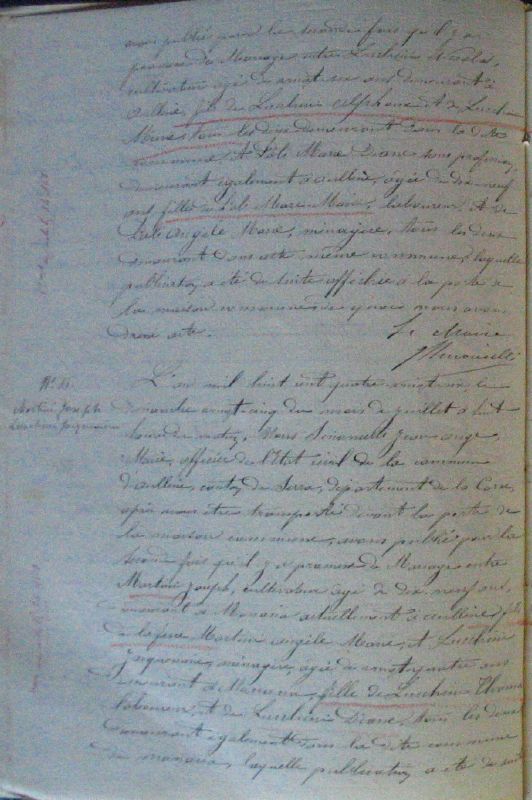 avons publié pour la seconde fois qu'il y a
promesse de Mariage entre Lucchini Nicolas,
cultivateur âgé de vingt six ans, demeurant à
Aullène, fils de Lucchini Alphonse et de Lucchini
Marie, tous les deux demeurant dans la dite
commune, et Poli Marie Diane sans profession,
demeurant également à Aullène, âgée de dix neuf
ans, fille de Poli Marc Marie, laboureur, et de
Poli Angèle Marie, ménagère, tous les deux
demeurant dans cette même commune, laquelle
publication a été de suite affichée à la porte de
la maison commune de quoi nous avons
dressé acte.
Le Maire
N° 11.
Martini Joseph
Lucchini
L'an mil huit cent quatre vingt un le
dimanche vingt cinq du mois de juillet à huit
heures du matin, Nous Jean Ange
Marie, officier de l'État civil de la commune
d'Aullène, canton de Serra, département de la Corse,
après nous être transporté devant la porte de
la maison commune, avons publié pour la
seconde fois qu'il y a promesse de Mariage entre
Martini Joseph, cultivateur âgé de dix neuf ans,
demeurant à actuellement à Aullène, fils
de Martini Angèle Marie, et Lucchini
ménagère, âgée de vingt quatre ans
demeurant à fille de Lucchini Thomas
laboureur, et de Lucchini Diane, tous les deux
demeurant également dans la dite commune
de laquelle publication a été de suite